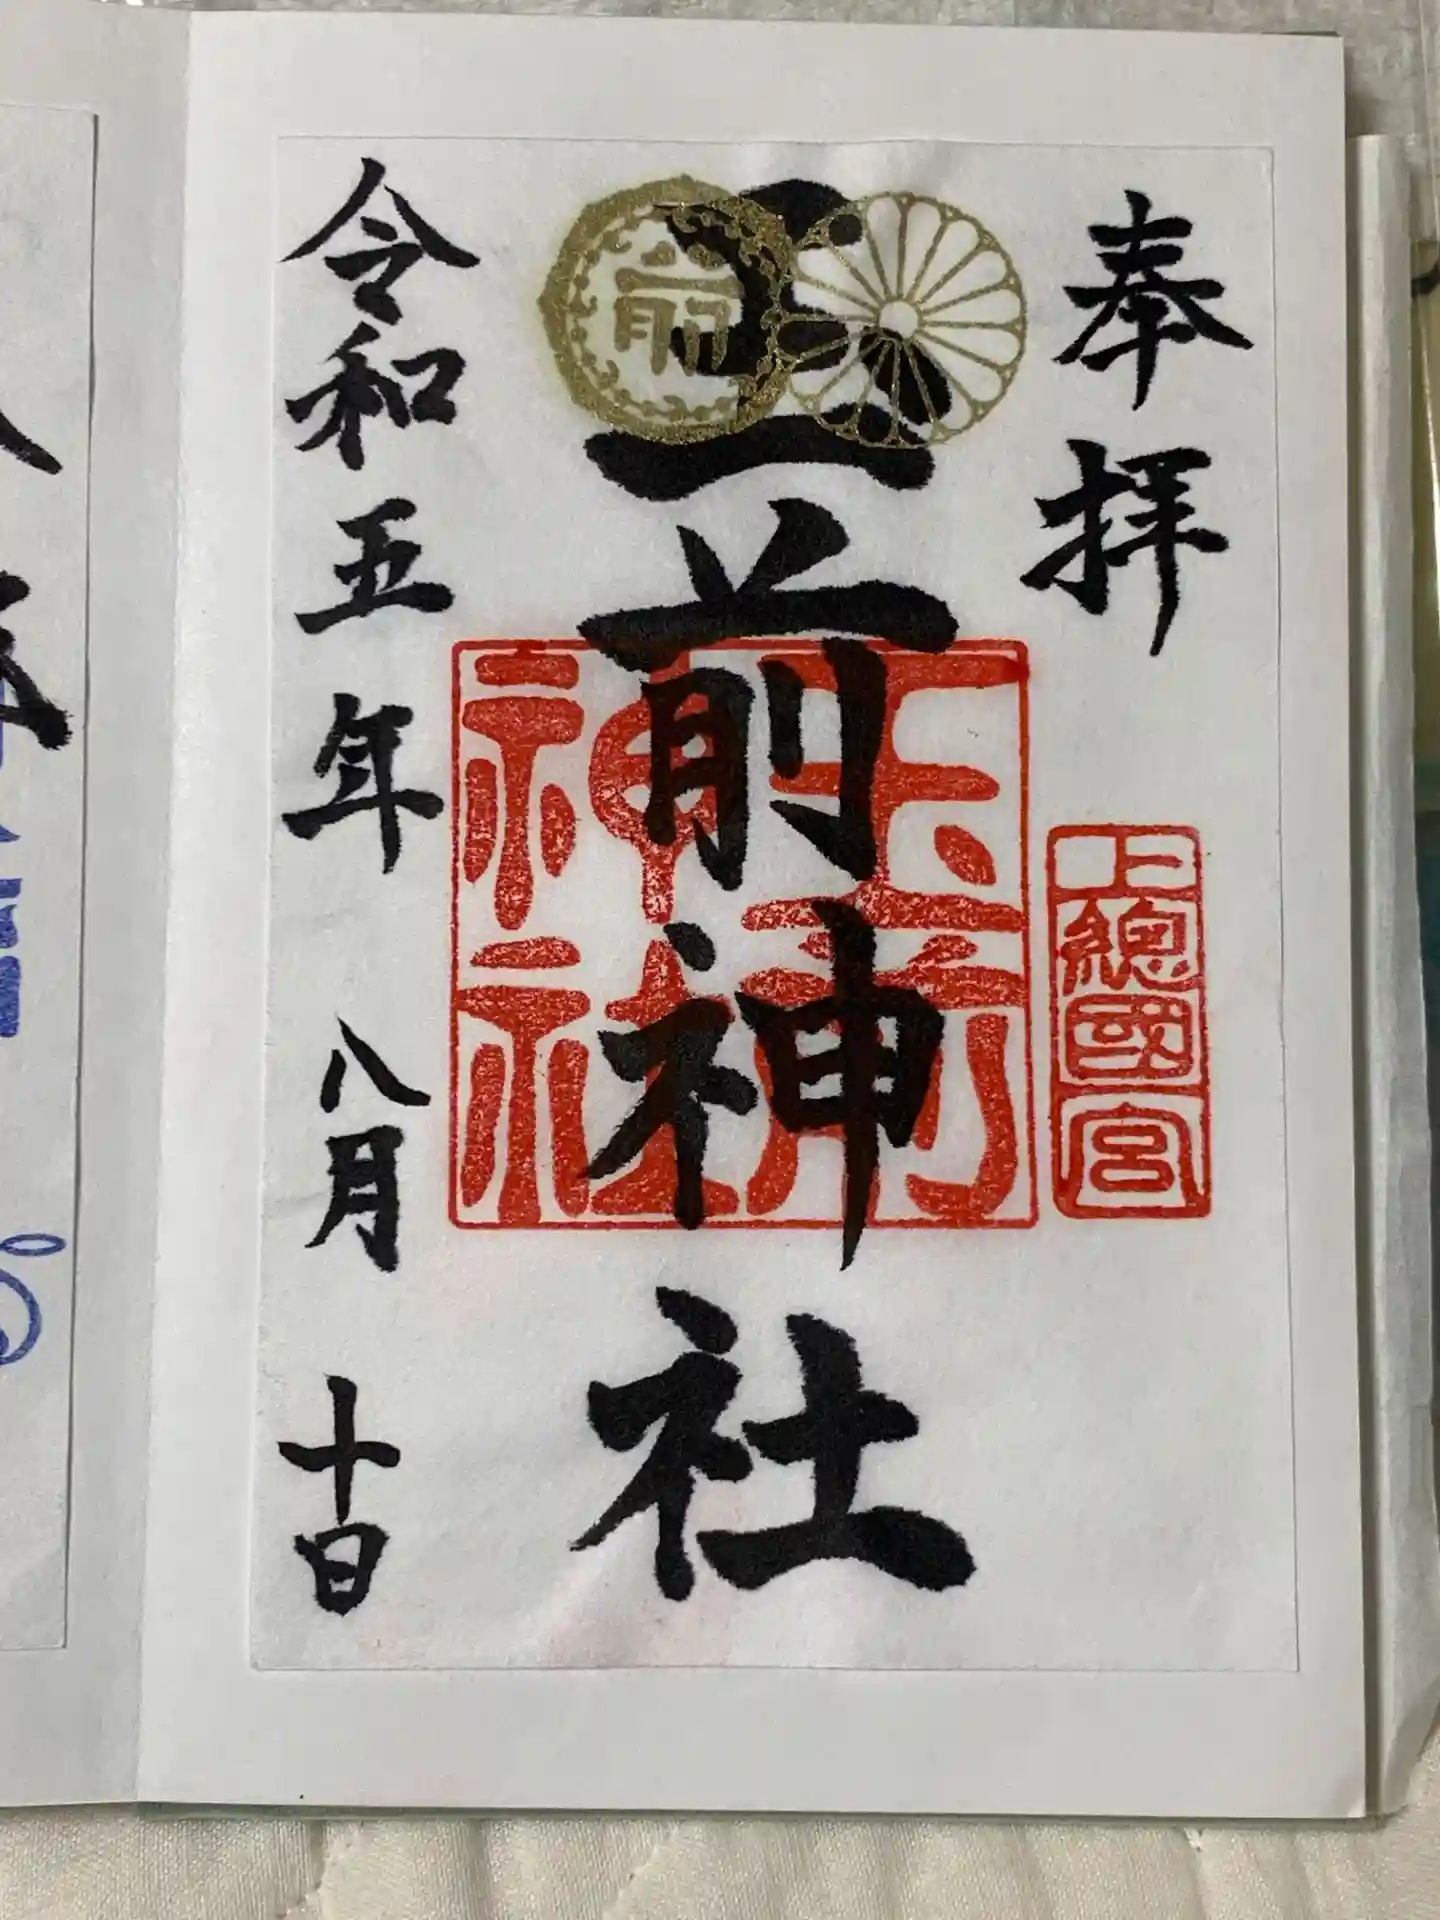 奉拝
上總國一宮
玉前神社
前
玉前神社
令和五年八月十日